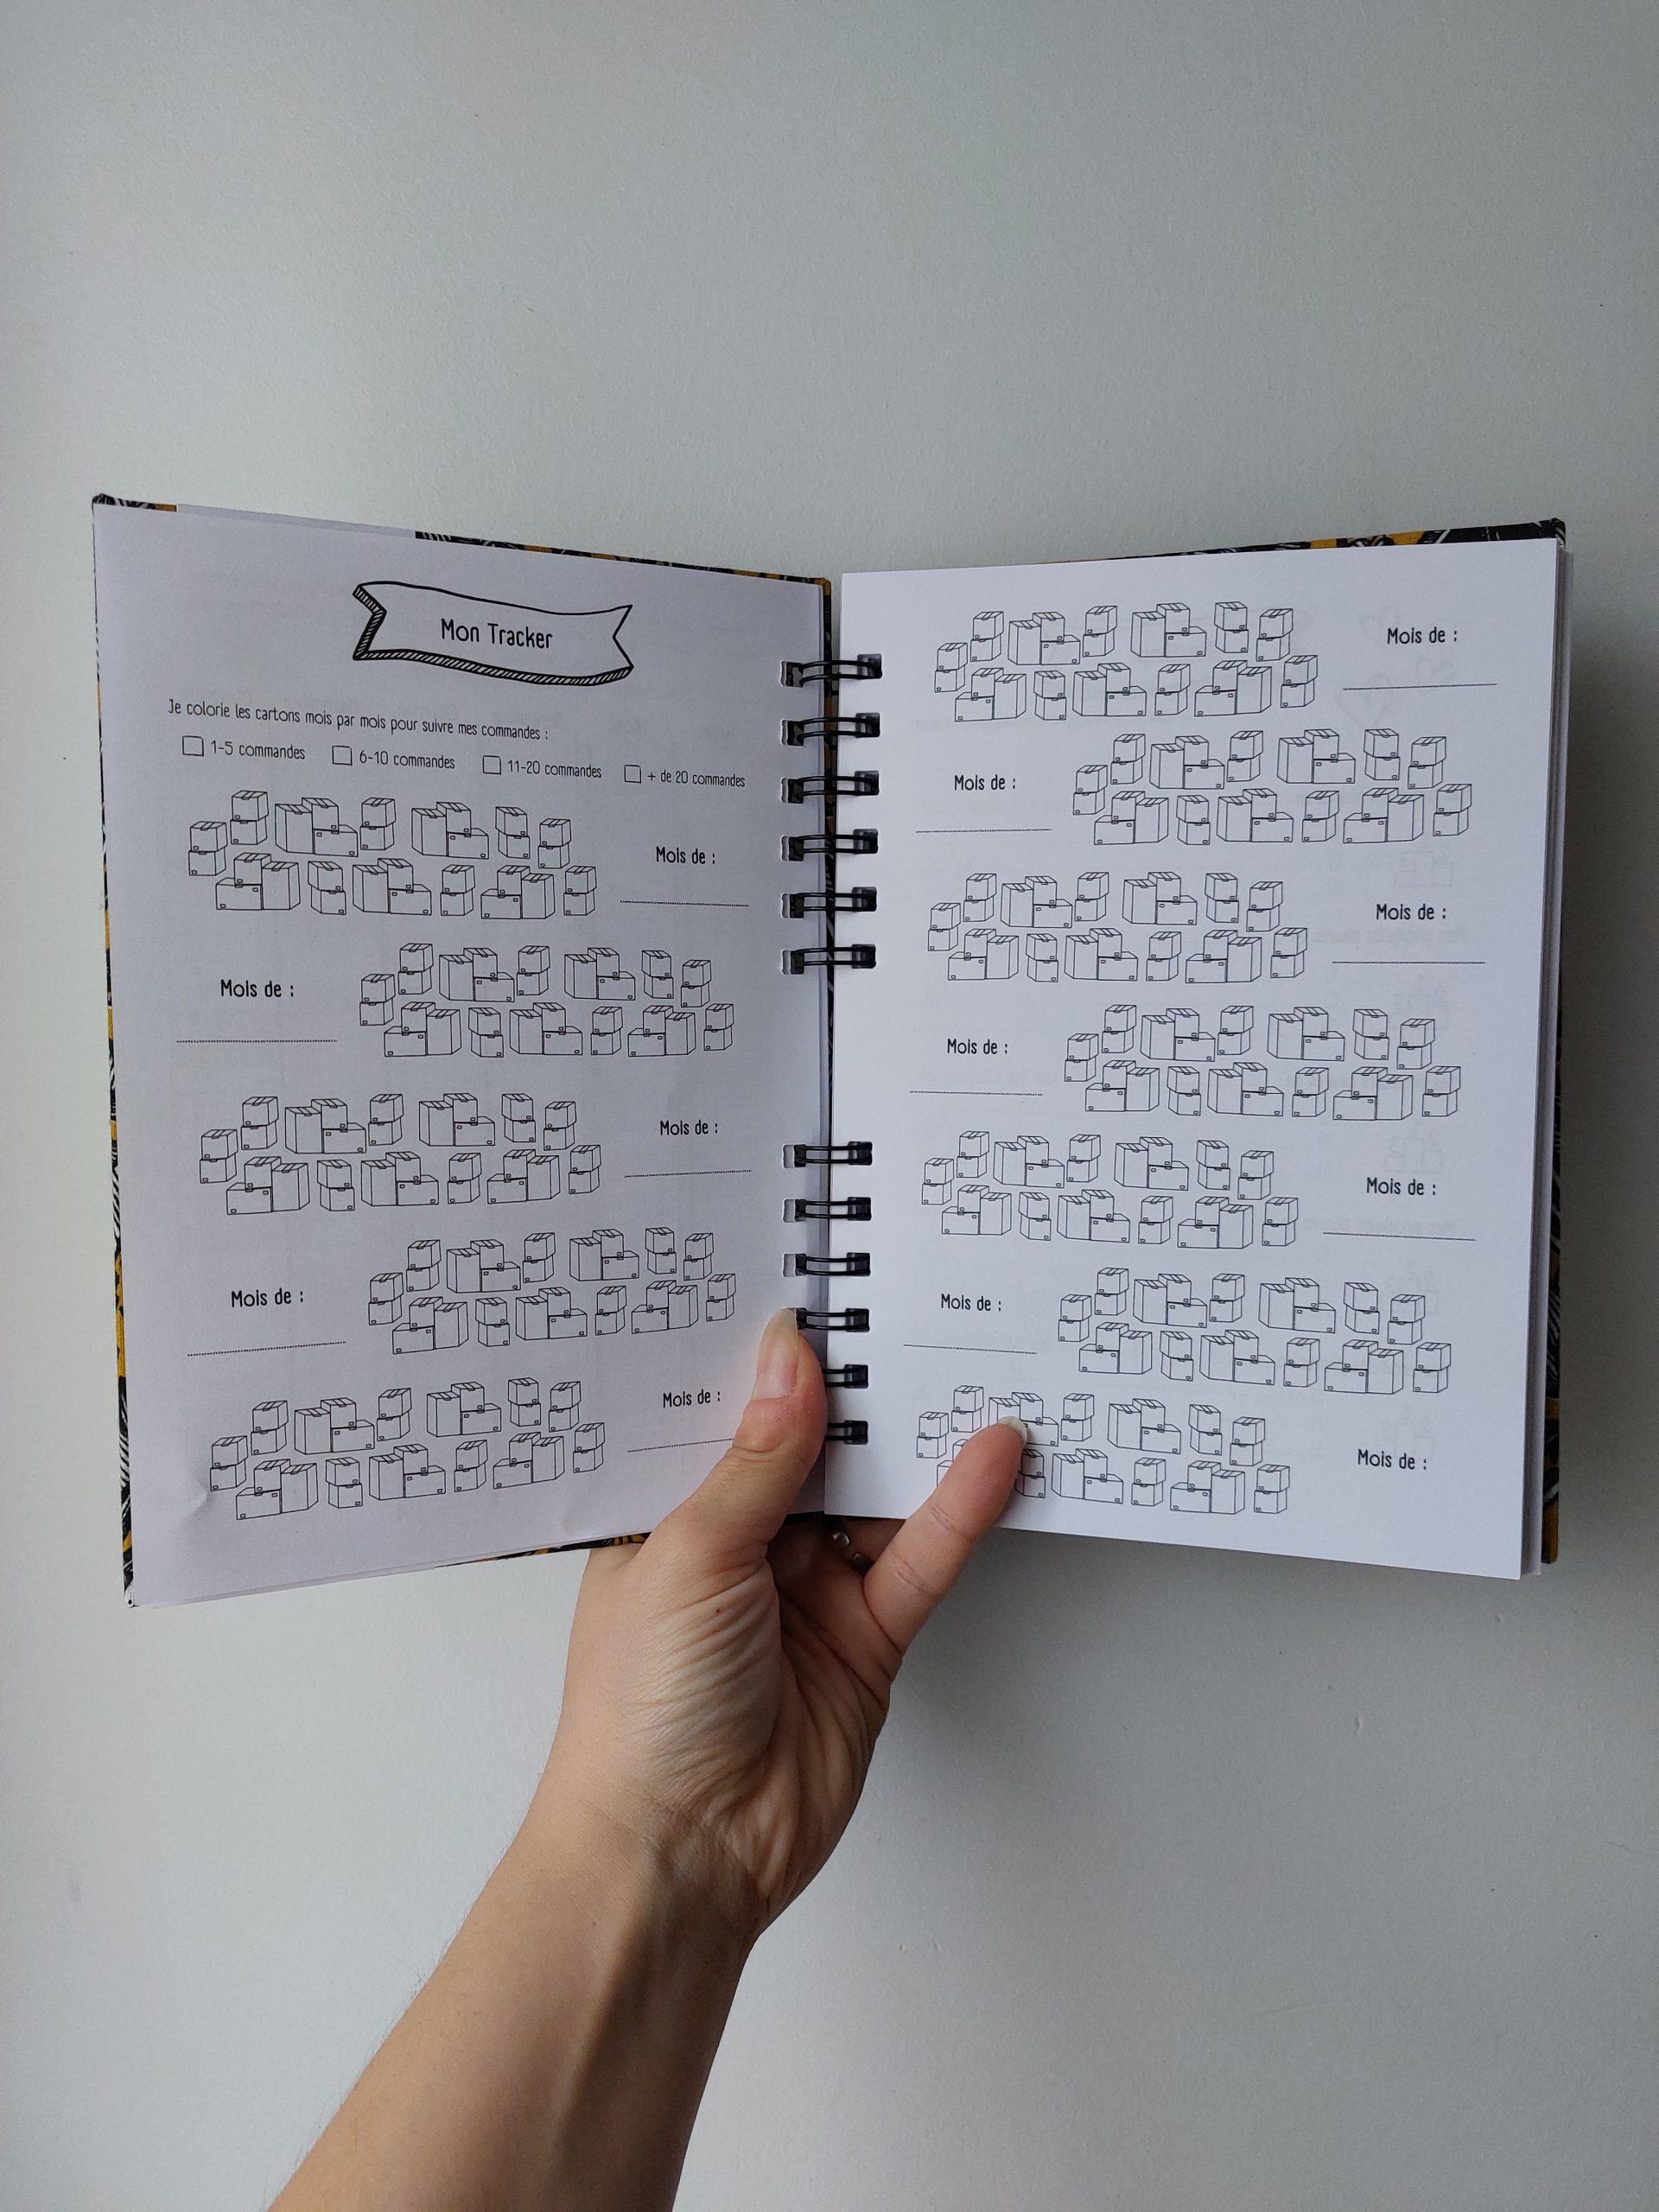 Mon Tracker
Je colorie les cartons mois par mois pour suivre mes commandes :
1-5 commandes 6-10 commandes 11-20 commandes + de 20 commandes
Mois de :
Mois de :
Mois de :
Mois de :
Mois de :
Mois de :
Mois de :
Mois de :
Mois de :
Mois de :
Mois de :
Mois de :